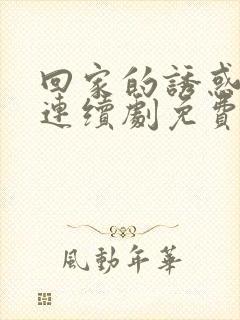 回家的誘惑
連續劇免費
風動年華